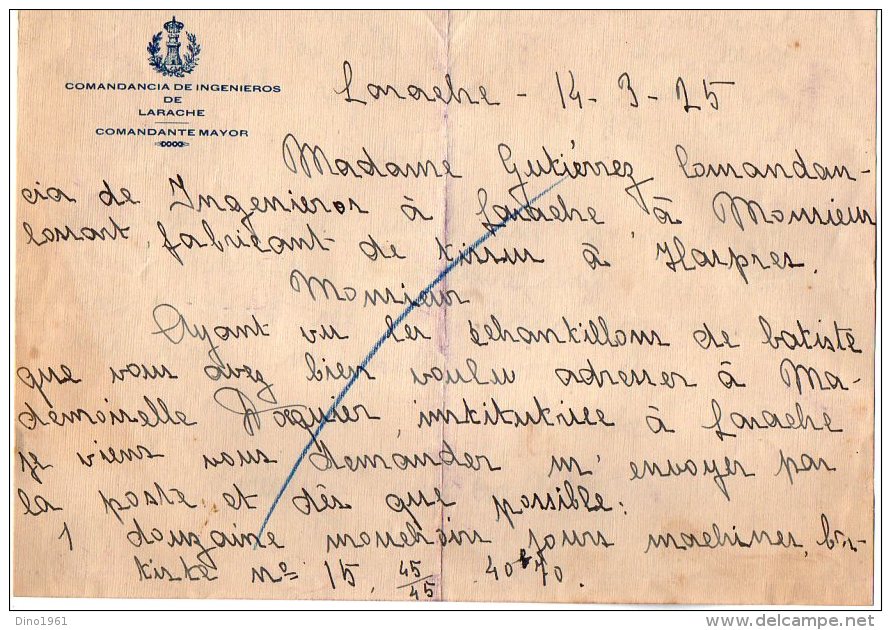 COMANDANCIA DE INGENIEROS
DE
LARACHE
COMANDANTE MAYOR
Larache - 14 - 3 - 25
Madame Gutiérrez Comandan-
cia de Ingenieros à Larache à Monsieur
fabricant de tissus à Haspres.
Monsieur
Ayant vu les échantillons de batiste
que vous avez bien voulu adresser à Ma-
demoiselle Waquier, institutrice à Larache
je viens vous demander m'envoyer par
la poste et dès que possible:
1 douzaine mouchoirs jours machines, ba-
tiste nº 15, 45/45 40 f 70.
Dino1961